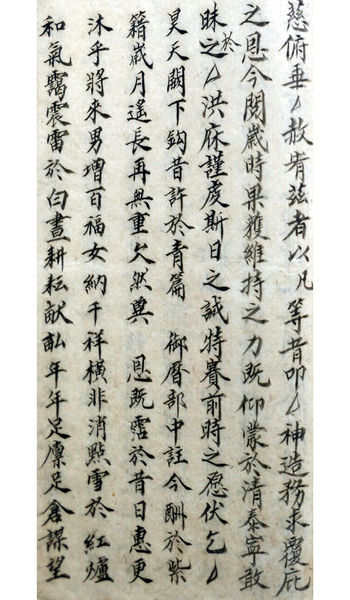 慈俯垂㇏赦宥茲者以凡等昔叩㇏神造務求覆庇
之恩今閱歲時果獲維持之力既仰蒙於清泰寧敢
昧於之㇏洪庥謹虔斯日之誠特賽前時之愿伏乞㇏
昊天闕下鈎昔許於青篇 御曆部中註今酬於紫
籍歲月遙長再無重欠然奠 恩既霑於昔日惠更
沐乎將來男增百福女納千祥橫非消點雪於紅爐
和氣靄震雷於白晝耕耘畝年年足廩足倉謀望